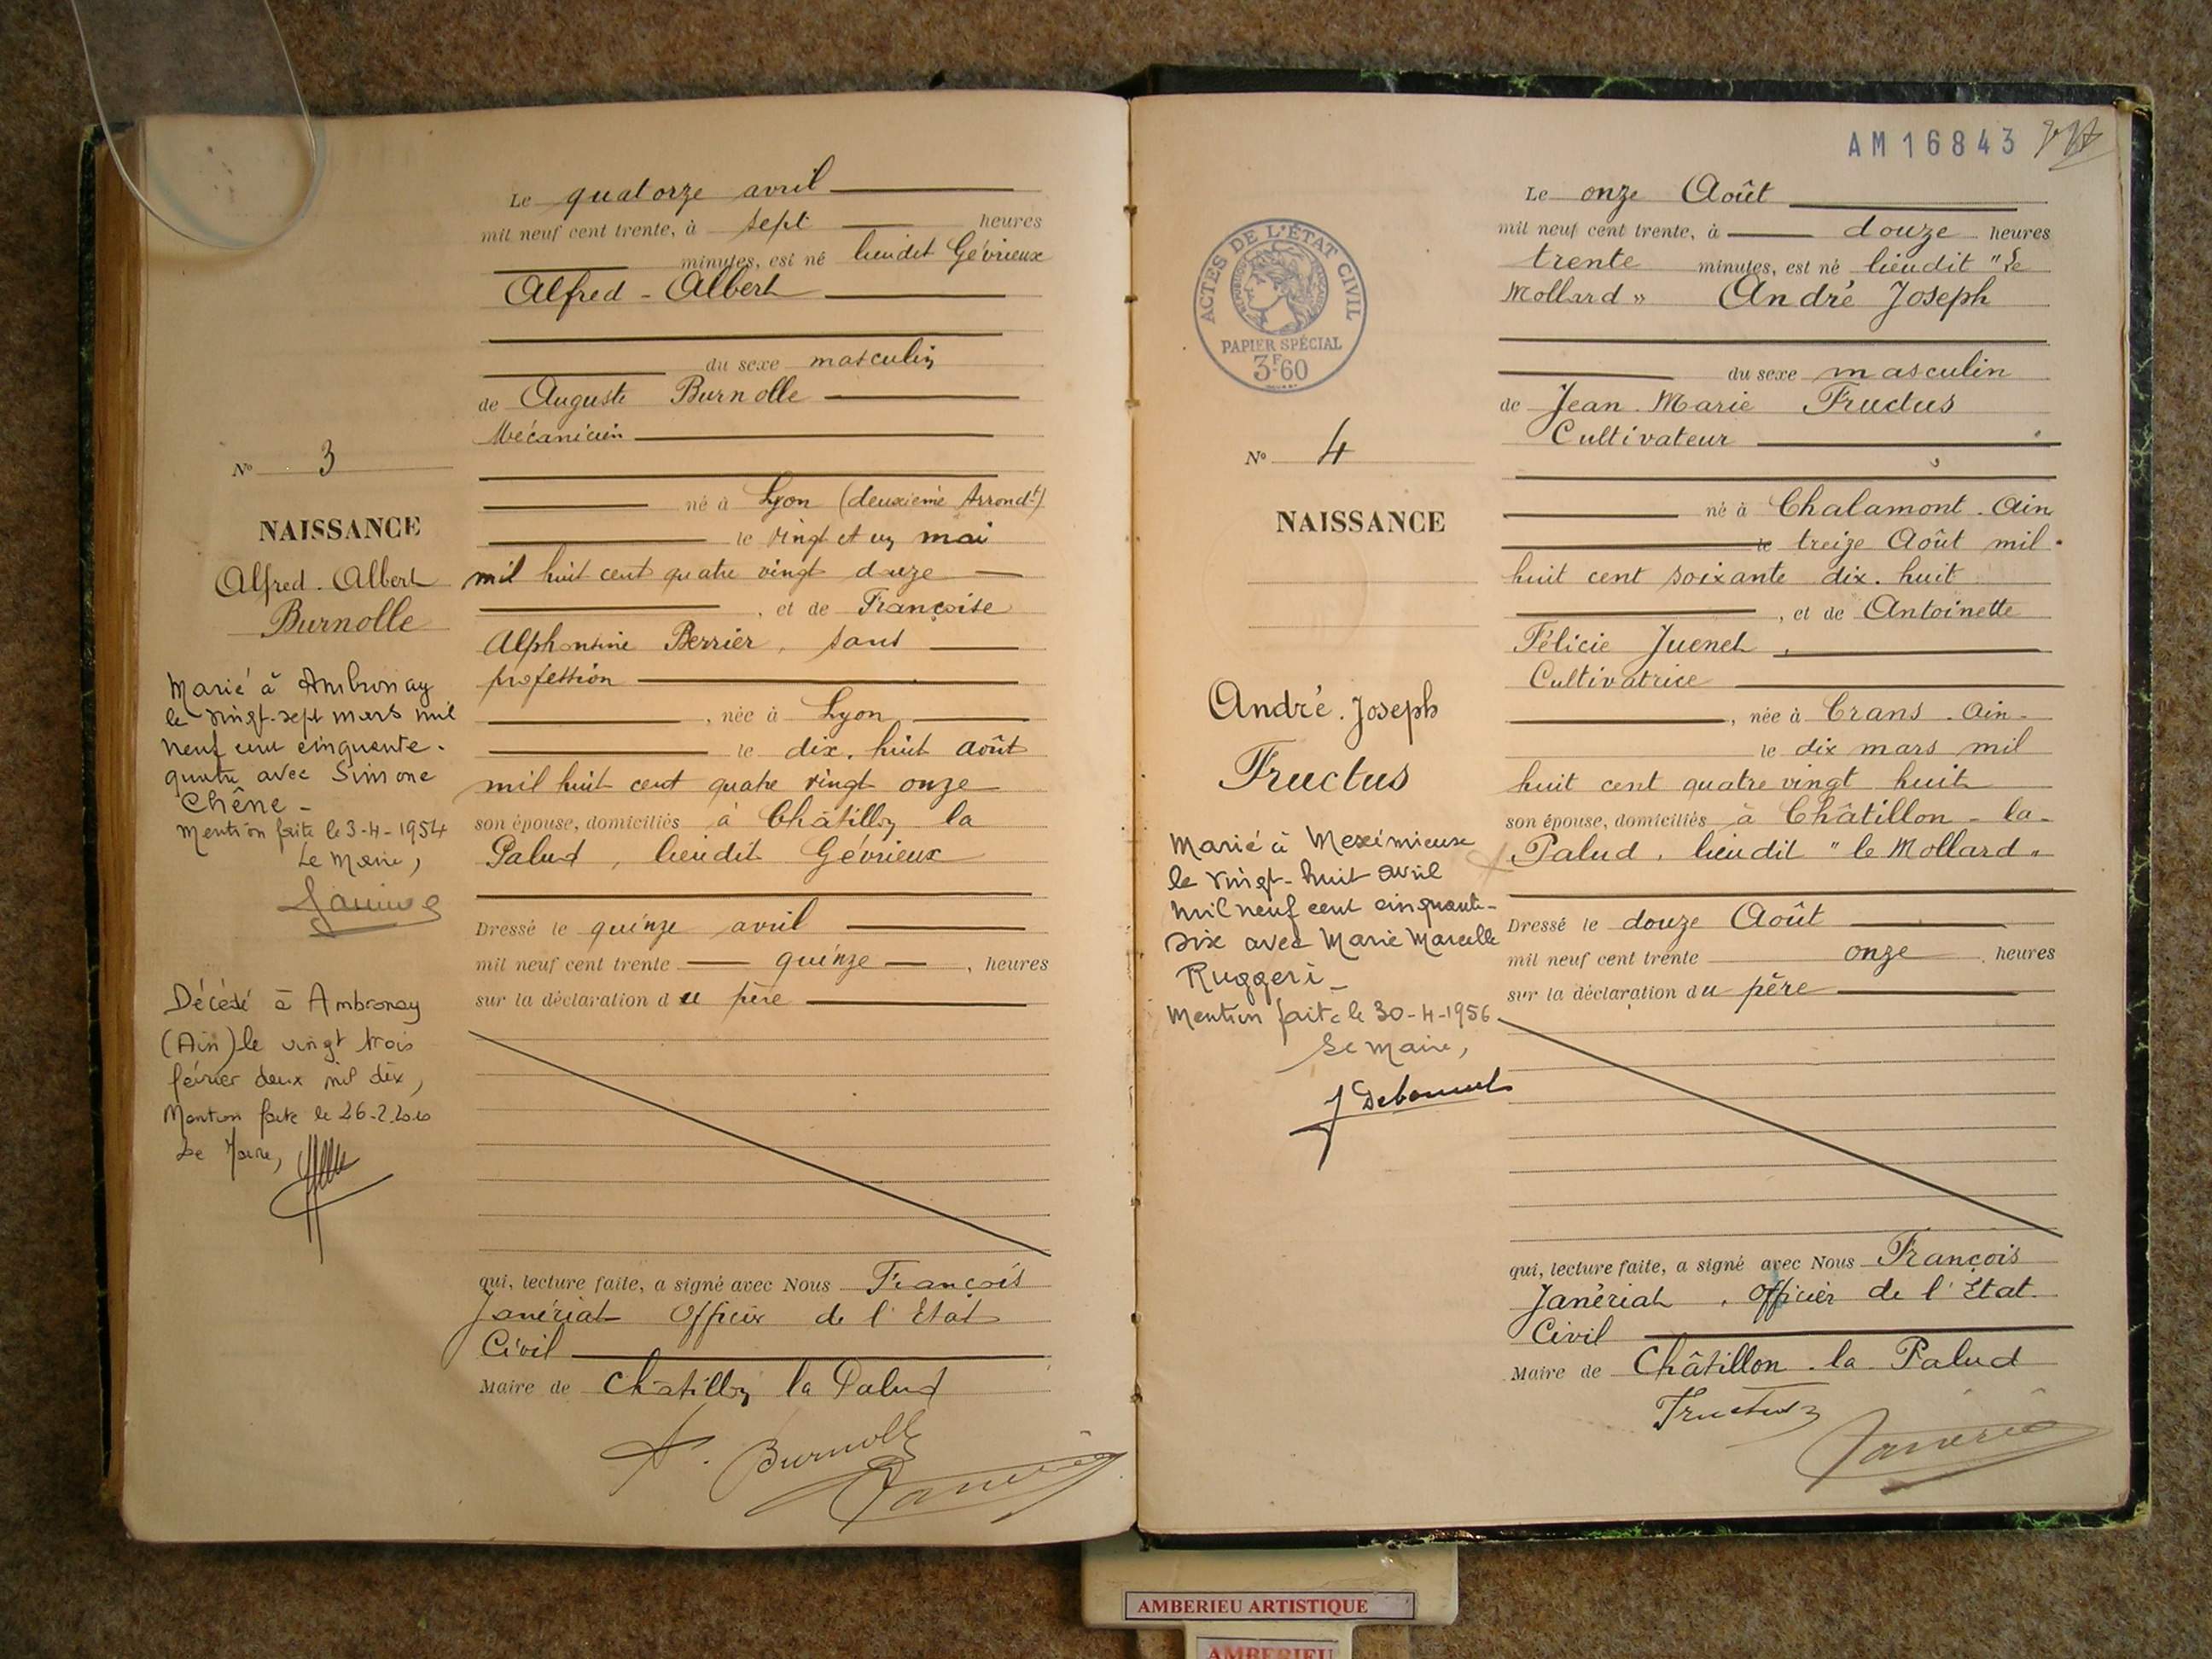 Le quatorze avril
mil neuf cent trente, à sept heures
minutes, est né lieudit Gévrieux
Alfred - Albert
du sexe masculin
de Auguste Burnolle
Mécanicien
né à Lyon (deuxième Arrondt)
le vingt et un mai
mil huit cent quatre vingt douze
, et de Françoise
Alphonsine Berrier, sans
profession
, née à Lyon
le dix. huit août
mil huit cent quatre vingt onze
son épouse, domiciliés à Châtillon la
Palud, lieudit Gévrieux
Dressé le quinze avril
mil neuf cent trente quinze, heures
sur la déclaration du père
qui, lecture faite, a signé avec Nous François
Janériat Officier de l'Etat
Civil
Maire de Châtillon la Palud
A. Burnolle
Janériat
No 3
NAISSANCE
Alfred - Albert
Burnolle
Marié à Ambronay
le vingt-sept mars mil
neuf cent cinquante-
quatre avec Simone
Chêne -
Mention faite le 3-4-1954
Le Maire,
Décédé à Ambronay
(Ain) le vingt trois
février deux mil dix,
Mention faite le 26-2.2010
Le Maire,
AM16843
ACTES DE L'ÉTAT CIVIL
RÉPUBLIQUE FRANÇAISE
PAPIER SPÉCIAL
3F60
No 4
NAISSANCE
André. Joseph
Fructus
Marié à Meximieux
le vingt-huit avril
mil neuf cent cinquante-
six avec Marie Marcelle
Ruggeri -
Mention faite le 30-4-1956
Le Maire,
Le onze Août
mil neuf cent trente, à douze heures
trente minutes, est né lieudit "Le
Mollard" André Joseph
du sexe masculin
de Jean. Marie Fructus
Cultivateur
né à Chalamont. Ain
le treize Août mil
huit cent soixante dix. huit
, et de Antoinette
Félicie Juenet,
Cultivatrice
, née à Crans. Ain-
le dix mars mil
huit cent quatre vingt huit
son épouse, domiciliés à Châtillon - la-
Palud, lieudit "le Mollard"
Dressé le douze Août
mil neuf cent trente onze, heures
sur la déclaration du père
qui, lecture faite, a signé avec Nous François
Janériat, Officier de l'Etat
Civil
Maire de Châtillon - la - Palud
Fructus
Janériat
AMBERIEU ARTISTIQUE
AMBERIEU